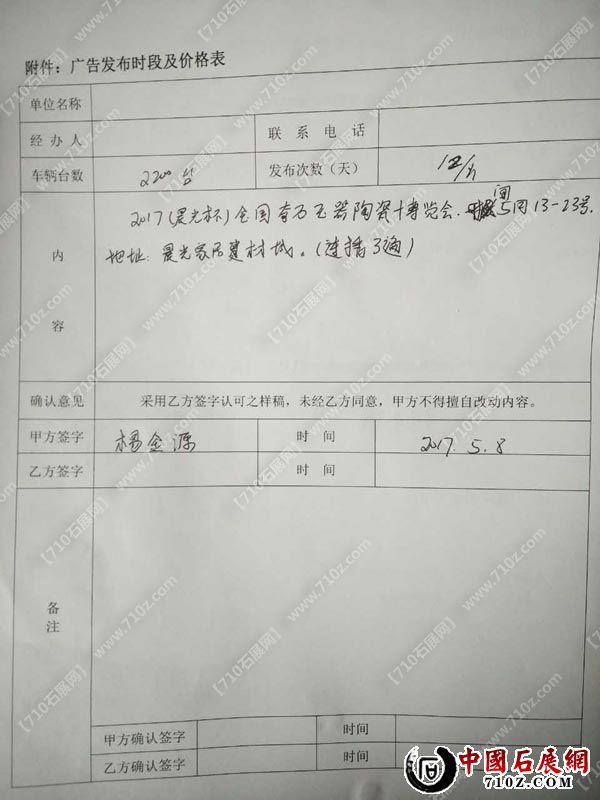 附件：广告发布时段及价格表
单位名称
经办人 联系电话
车辆台数 2200台 发布次数（天）
内容
2017（晨光杯）全国奇石玉器陶瓷博览会. 时间5月13-23号.
地址：晨光家居建材城。（连播3遍）
确认意见 采用乙方签字认可之样稿，未经乙方同意，甲方不得擅自改动内容。
甲方签字 杨金源 时间 2017.5.8
乙方签字 时间
备注
甲方确认签字 时间
乙方确认签字 时间
【710石展网】 www.710z.com
中國石展網
710Z.COM